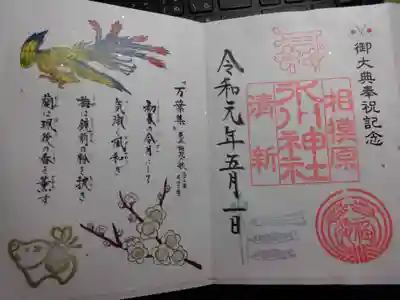 御大典奉祝記念
相摸原
氷川神社
清新
令和元年五月一日
『万葉集』
初春の令月にして
気淑く風和ぎ
梅は鏡前の粉を披き
蘭は珮後の香を薫す